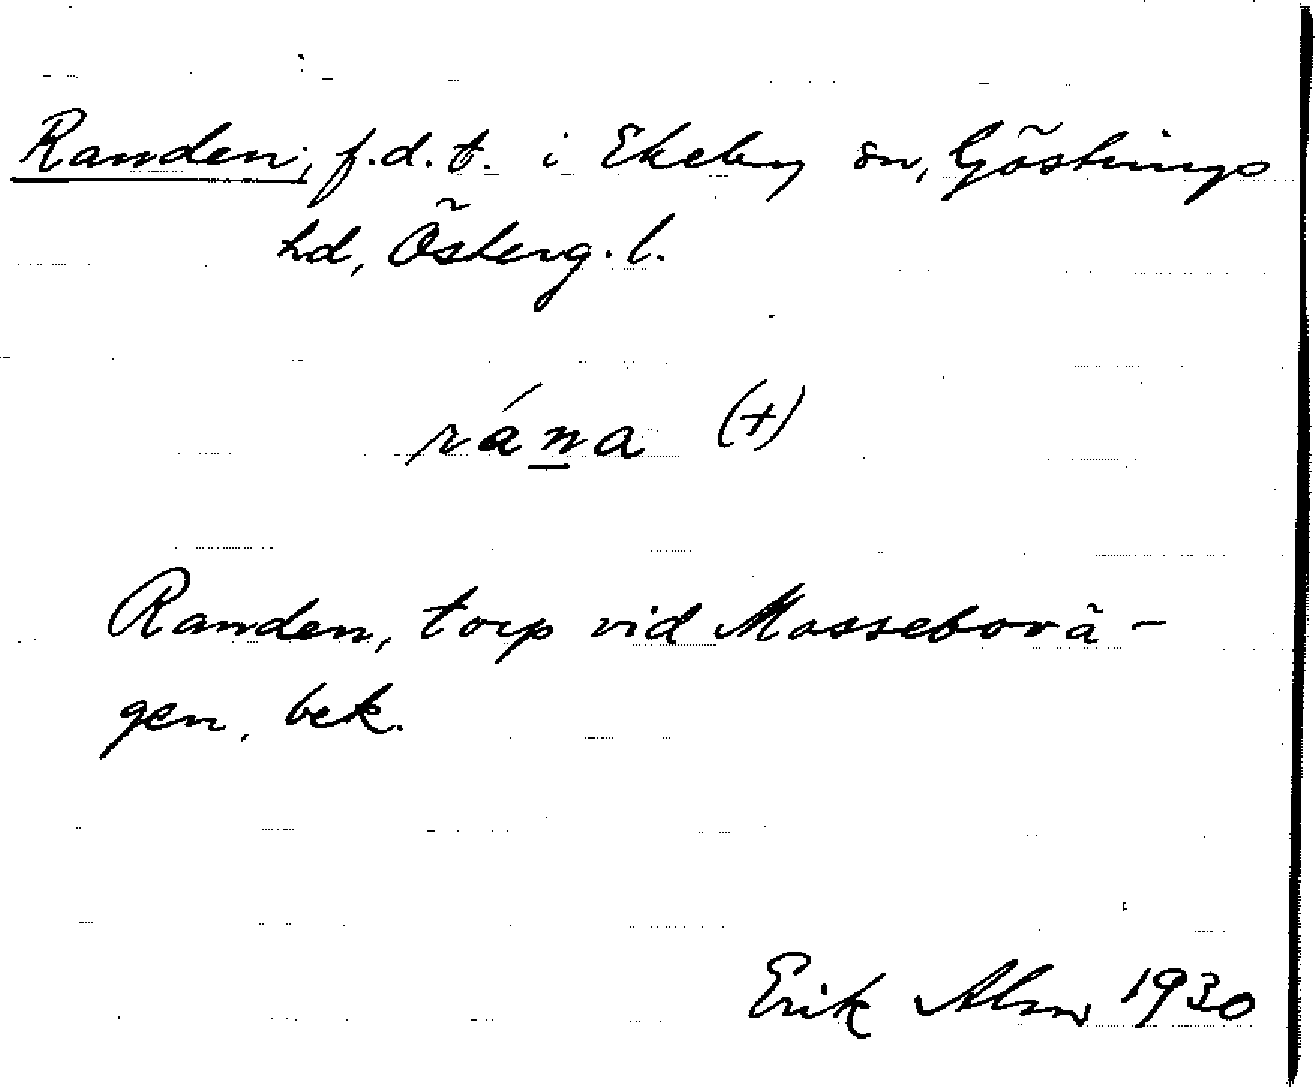 Randen, f.d.t. i Ekeby sn, Göstrings
hd, Österg. l.
rána (+)
Randen, torp vid Mossebovä-
gen, bek.
Erik Alm 1930